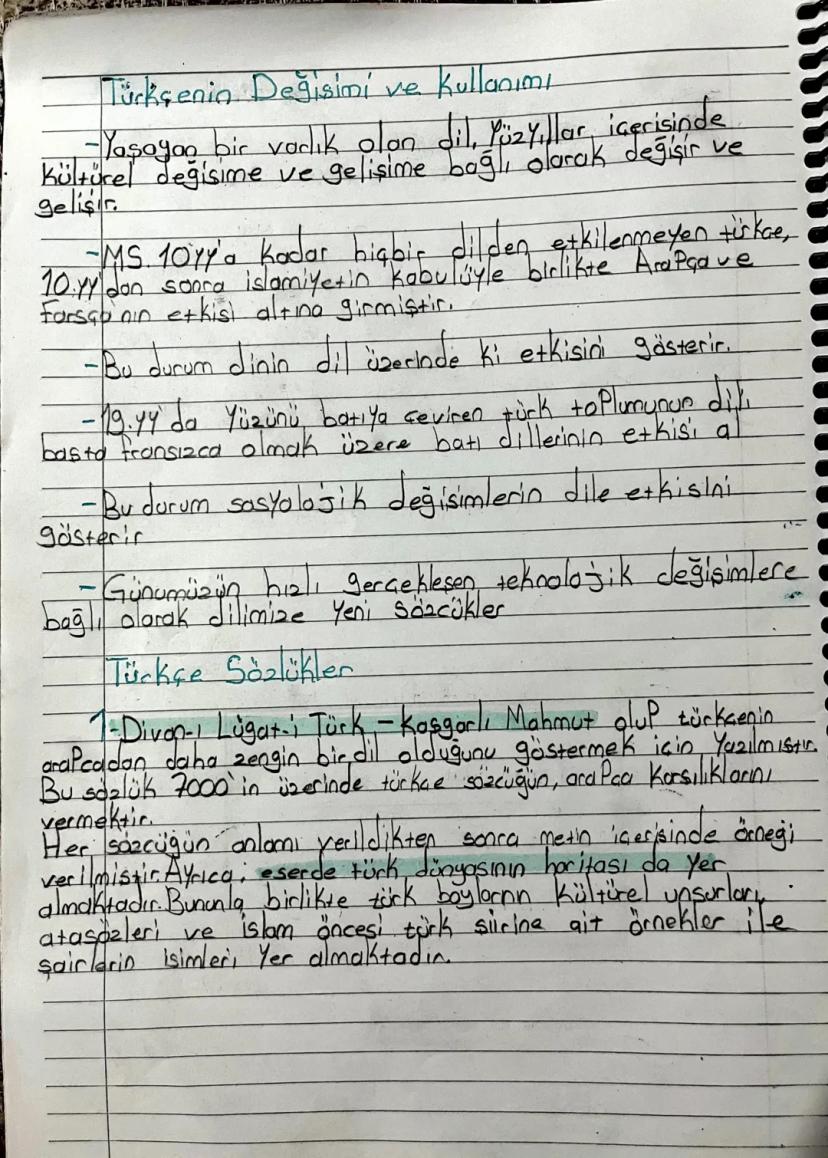 Türkçenin Değişimi ve Kullanımı
-Yaşayan bir varlık olan dil, Yüzyıllar içerisinde
kültürel değişime ve gelişime bağlı olarak değişir ve
gelişir.
-MS. 10YY'a kadar hiçbir dilden etkilenmeyen türkçe,
10.yy'dan sonra islamiyetin kabulüyle birlikte Arapça ve
Farsça'nın etkisi altına girmiştir.
-Bu durum dinin dil üzerinde ki etkisini gösterir.
-19.yy'da Yüzünü batıya çeviren türk toplumunun dili
başta fransızca olmak üzere batı dillerinin etkisi al
-Bu durum sosyolojik değişimlerin dile etkisini
gösterir
-Günümüzün hızlı gerçekleşen teknolojik değişimlere
bağlı olarak dilimize yeni sözcükler
Türkçe Sözlükler
1-Divan-ı Lügat-i Türk - Kaşgarlı Mahmut olup türkçenin
arapçadan daha zengin bir dil olduğunu göstermek için yazılmıştır.
Bu sözlük 7000'in üzerinde türkçe sözcüğün, arapça karşılıklarını
vermektir.
Her sözcüğün anlamı verildikten sonra metin içerisinde örneği
verilmiştir. Ayrıca; eserde türk dünyasının haritası da yer
almaktadır. Bununla birlikte türk boylarnn kültürel unsurları,
atasözleri ve islam öncesi türk şiirine ait örnekler ile
şairlerin isimleri yer almaktadır.